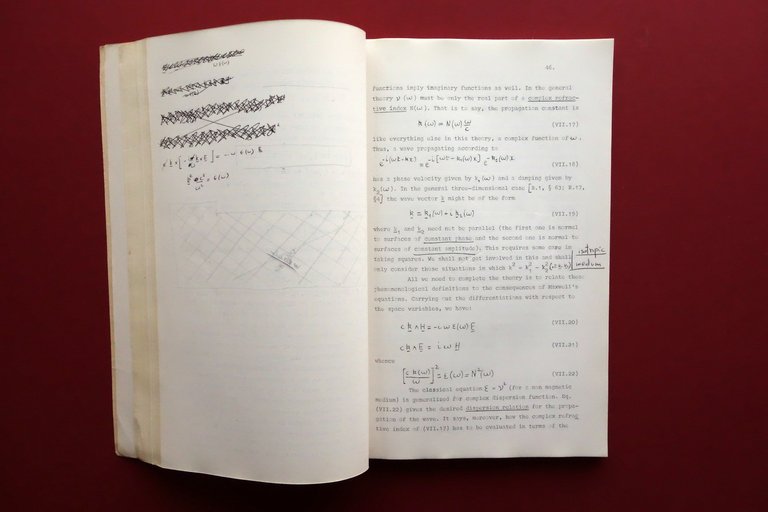 k × [- k × E ] = - ω ε(ω) E
= ε(ω)
46.
functions imply imaginary functions as well. In the general
theory ν(ω) must be only the real part of a complex refrac-
tive index N(ω). That is to say, the propagation constant is
k(ω) = N(ω) ω/c (VII.17)
like everything else in this theory, a complex function of ω.
Thus, a wave propagating according to
(VII.18)
has a phase velocity given by k₁(ω) and a damping given by
k₂(ω). In the general three-dimensional case [R.1, § 63; R.17,
§4] the wave vector k might be of the form
k = k₁(ω) + i k₂(ω) (VII.19)
where k₁ and k₂ need not be parallel (the first one is normal
to surfaces of constant phase and the second one is normal to
surfaces of constant amplitude). This requires some care in
taking squares. We shall not get involved in this and shall
only consider those situations in which k² = k₁² - k₂²
isotropic
medium
All we need to complete the theory is to relate these
phenomenological definitions to the consequences of Maxwell's
equations. Carrying out the differentiations with respect to
the space variables, we have:
c k ∧ H = -ω ε(ω) E (VII.20)
c k ∧ E = i ω H (VII.21)
whence
[c k(ω)/ω]² = ε(ω) = N²(ω) (VII.22)
The classical equation ε = ν² (for a non magnetic
medium) is generalized for complex dispersion function. Eq.
(VII.22) gives the desired dispersion relation for the propa-
gation of the wave. It says, moreover, how the complex refrac
tive index of (VII.17) has to be evaluated in terms of the